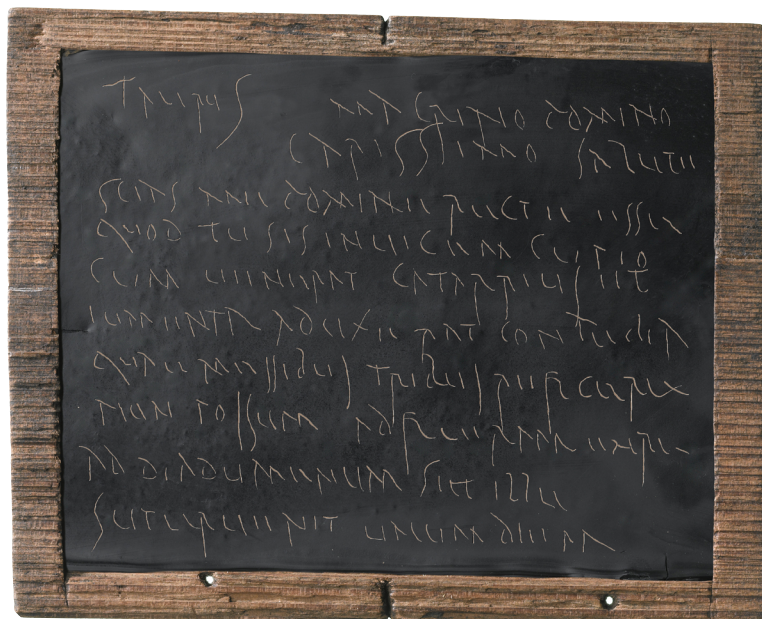 Taurus Macrino domino
carissimo salute
scias me domine recte esse
quod tu sis invicem cupio
cum venerat Catarrius et
iumenta aduxerat conpedia
quae messibus tribus reficere
non possum adfueram
ad Diadumenum set ille
supervenit unum diem